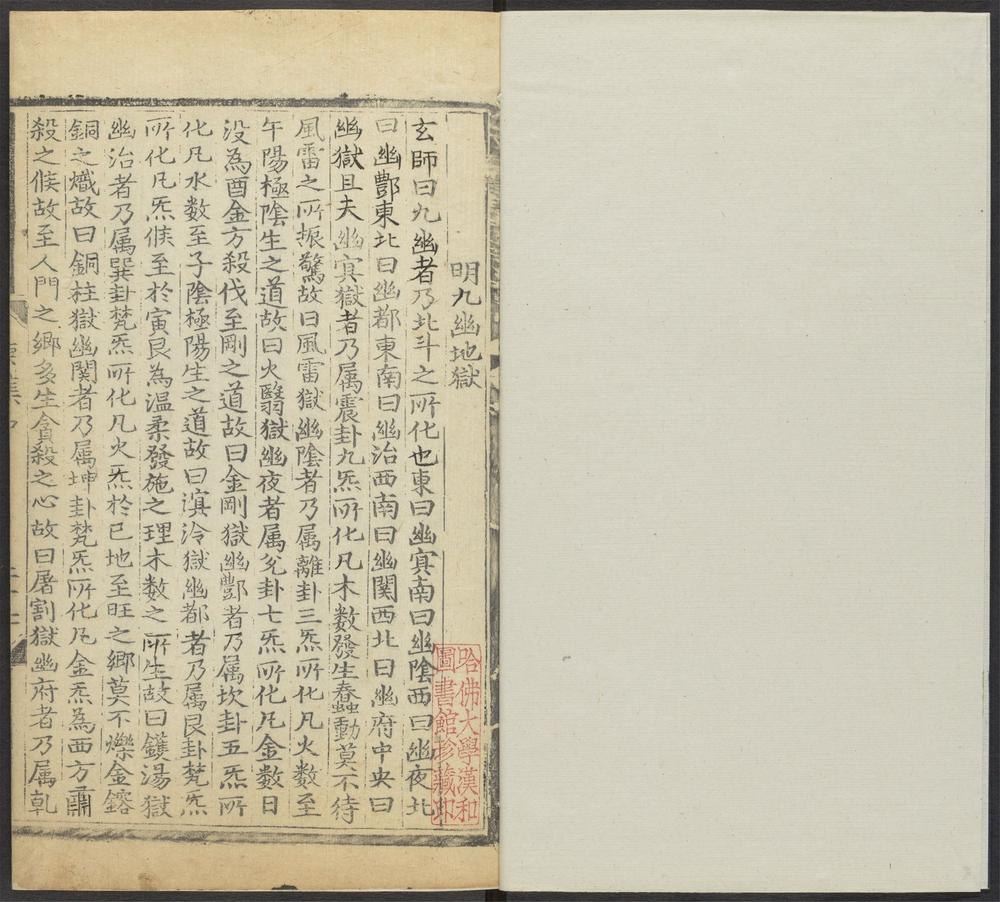 明九幽地獄
玄師曰九幽者乃北斗之所化也東曰幽㝠南曰幽陰西曰幽夜北
曰幽酆東北曰幽都東南曰幽治西南曰幽関西北曰幽府中央曰
幽獄且夫幽㝠獄者乃属震卦九炁所化凡木数發生蠢動莫不待
風雷之所振驚故曰風雷獄幽陰者乃属離卦三炁所化凡火数至
午陽極陰生之道故曰火翳獄幽夜者属兊卦七炁所化凡金数日
没為酉金方殺伐至剛之道故曰金剛獄幽酆者乃属坎卦五炁所
化凡水数至子陰極陽生之道故曰溟泠獄幽都者乃属艮卦梵炁
所化凡炁候至於寅艮為温柔發施之理木数之所生故曰鑊湯獄
幽治者乃属巽卦梵炁所化凡火炁於巳地至旺之鄉莫不爍金鎔
銅之熾故曰銅柱獄幽関者乃属坤卦梵炁所化凡金炁為西方肅
殺之候故至人門之鄉多生貪殺之心故曰屠割獄幽府者乃属乹
哈佛大學漢和
圖書館珍藏印